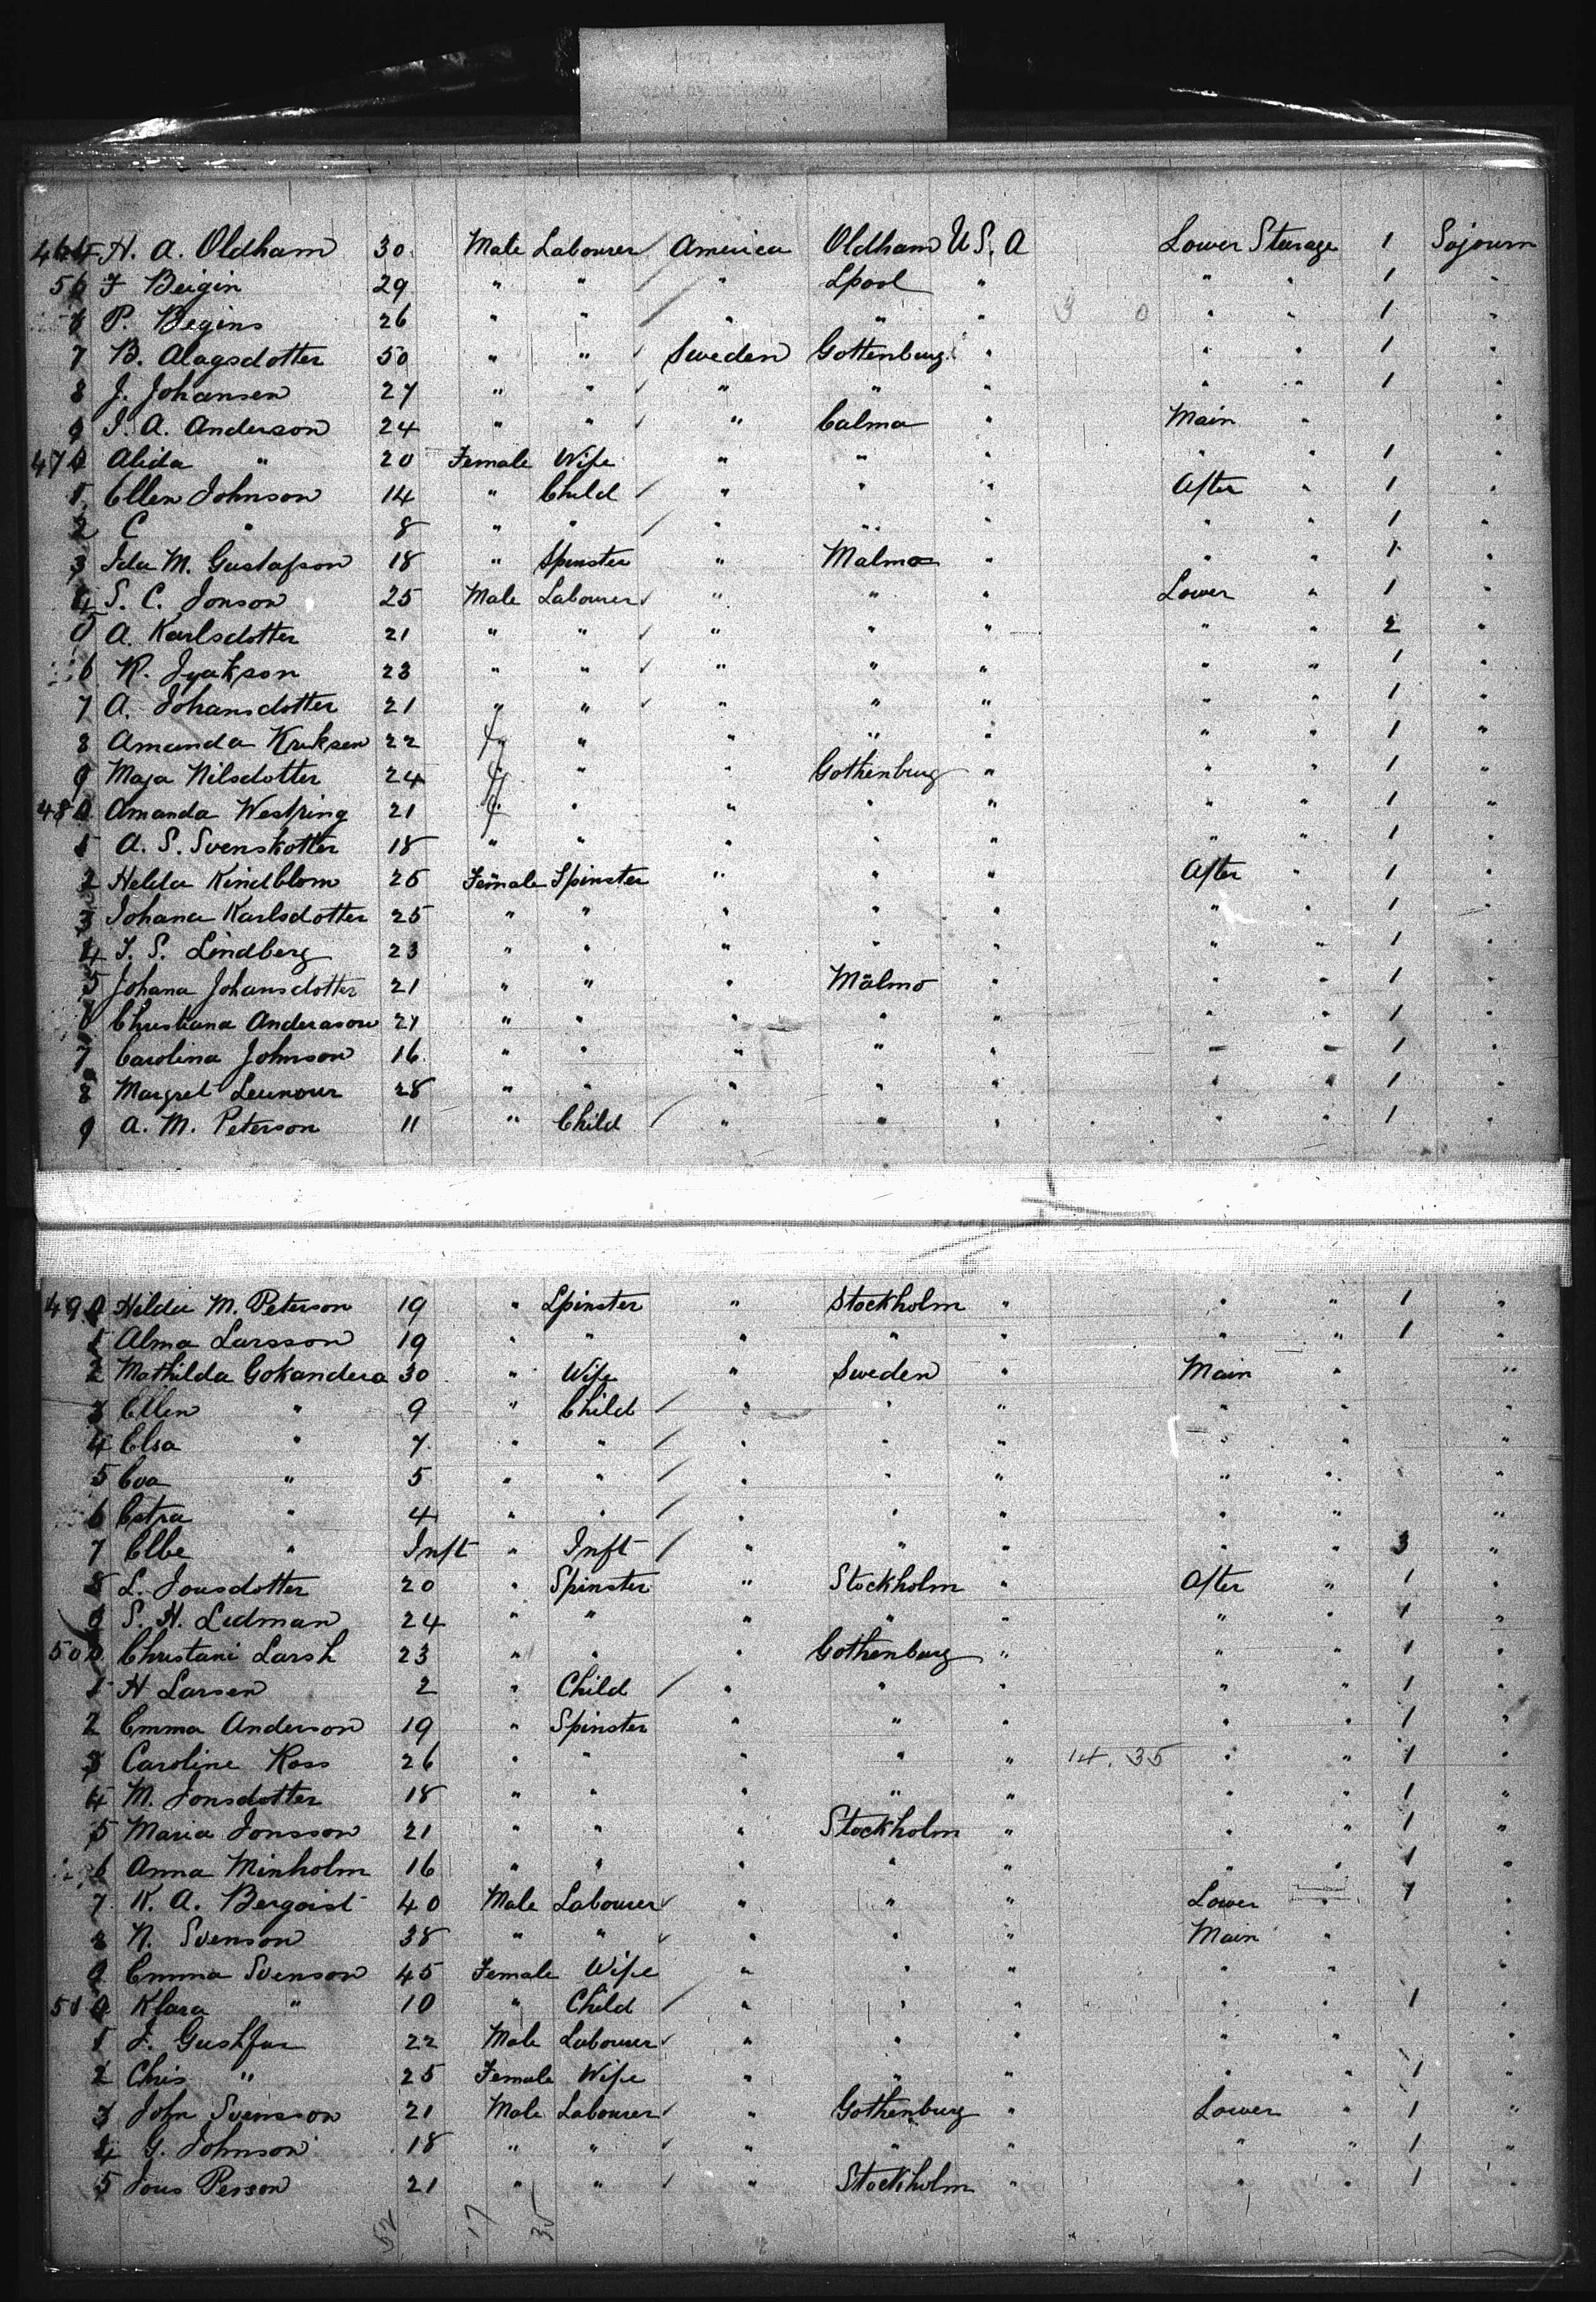 464 H. A. Oldham 30 Male Labourer America Oldham U S. A Lower Steerage 1 Sojourn
5 F Beigin 29 " " " Lpool " " " 1 "
6 P. Begins 26 " " " " " 3 0 " " 1 "
7 B. Alagsdotter 50 " " Sweden Gottenburg " " " 1 "
8 J. Johansen 27 " " " " " " " 1 "
9 J. A. Anderson 24 " " " Calma " Main " "
470 Alida " 20 Female Wife " " " " " 1 "
1 Ellen Johnson 14 " Child " " " After " 1 "
2 C " 8 " " " " " " " 1 "
3 Ida M. Gustafson 18 " Spinster " Malmo " " " 1 "
4 S. C. Jonson 25 Male Labourer " " " Lower " 1 "
5 A. Karlsdotter 21 " " " " " " " 2 "
6 K. Jyakson 23 " " " " " " " 1 "
7 A. Johansdotter 21 " " " " " " " 1 "
8 Amanda Kreksen 22 f " " " " " " 1 "
9 Maja Nilsdotter 24 f " " Gothenburg " " " 1 "
480 Amanda Westring 21 f " " " " " " 1 "
1 A. S. Svenskotter 18 " " " " " " " 1 "
2 Helda Kindblom 25 Female Spinster " " " After " 1 "
3 Johana Karlsdotter 25 " " " " " " " 1 "
4 J. S. Lindberg 23 " " " " " " " 1 "
5 Johana Johansdotter 21 " " " Malmo " " " 1 "
6 Christiana Anderason 21 " " " " " " " 1 "
7 Carolina Johnson 16 " " " " " " " 1 "
8 Margret Leunour 28 " " " " " " " 1 "
9 A. M. Peterson 11 " Child " " " " " 1 "
490 Hilda M. Peterson 19 " Spinster " Stockholm " " " 1 "
1 Alma Larsson 19 " " " " " " " 1 "
2 Mathilda Gokandera 30 " Wife " Sweden " Main " "
3 Ellen " 9 " Child " " " " " "
4 Elsa " 7 " " " " " " " "
5 Eva " 5 " " " " " " " "
6 Estra " 4 " " " " " " " "
7 Elbe " Inft " Inft " " " " " 3 "
8 L. Jonsdotter 20 " Spinster " Stockholm " After " 1 "
9 S. H. Ledman 24 " " " " " " " 1 "
500 Christani Larsh 23 " " " Gothenburg " " " 1 "
1 H Larsen 2 " Child " " " " " 1 "
2 Emma Anderson 19 " Spinster " " " " " 1 "
3 Caroline Ross 26 " " " " " 14. 35 " " 1 "
4 M. Jonsdotter 18 " " " " " " " 1 "
5 Maria Jonsson 21 " " " Stockholm " " " 1 "
6 Anna Minholm 16 " " " " " " " 1 "
7 K. A. Bergoist 40 Male Labourer " " " Lower " 1 "
8 N. Svenson 38 " " " " " Main " "
9 Emma Svenson 45 Female Wife " " " " " "
510 Klara " 10 " Child " " " " " 1 "
1 J. Gushfar 22 Male Labourer " " " " " "
2 Chis " 25 Female Wife " " " " " 1 "
3 John Svensson 21 Male Labourer " Gothenburg " Lower " 1 "
4 G. Johnson 18 " " " " " " " 1 "
5 Jons Person 21 " " " Stockholm " " " 1 "
52 17 35